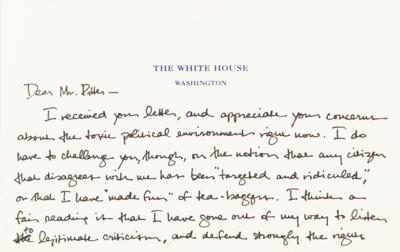 THE WHITE HOUSE
WASHINGTON
Dear Mr. Ritter –
I received your letter, and appreciate your concerns
about the toxic political environment right now. I do
have to challenge you, though, on the notion that any citizen
that disagrees with me has been "targeted and ridiculed",
or that I have "made fun" of tea-baggers. I think a
fair reading is that I have gone out of my way to listen
to legitimate criticism, and defend strongly the right